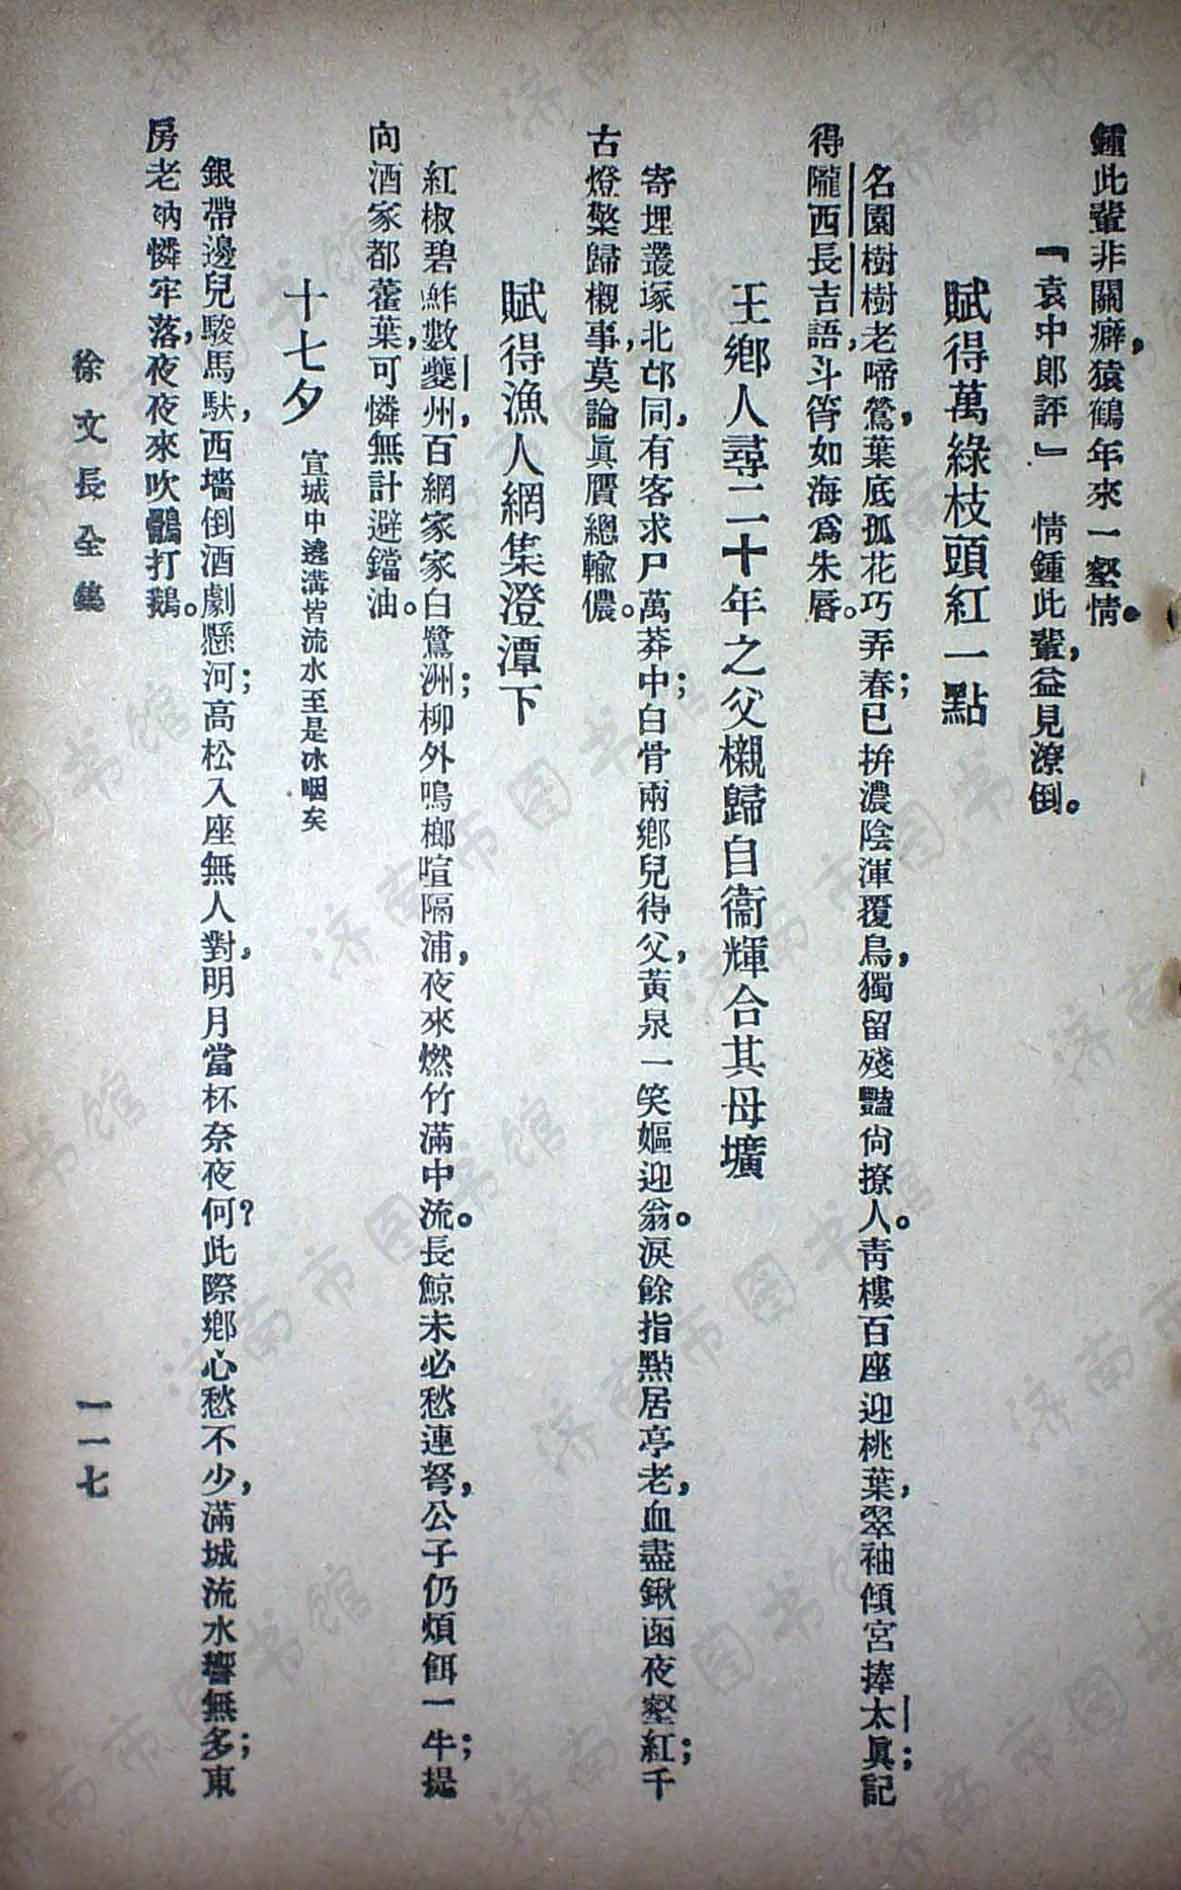 鍾此輩非關癖，猿鶴年來一壑情。
『袁中郎評』　情鍾此輩，益見潦倒。
賦得萬綠枝頭紅一點
名園樹樹老啼鶯，葉底孤花巧弄春；已拚濃陰渾覆鳥，獨留殘豔尙撩人。靑樓百座迎桃葉，翠袖傾宮捧太眞；記
得隴西長吉語，斗筲如海爲朱唇。
王鄕人尋二十年之父櫬歸自衞輝合其母壙
寄埋叢塚北邙同，有客求尸萬莽中；白骨兩鄕兒得父，黃泉一笑嫗迎翁。淚餘指點居亭老，血盡鍬函夜壑紅；千
古燈檠歸櫬事，莫論眞贋總輸儂。
賦得漁人網集澄潭下
紅椒碧鮓數夔州，百網家家白鷺洲；柳外鳴榔喧隔浦，夜來燃竹滿中流。長鯨未必愁連弩，公子仍煩餌一牛；提
向酒家都藿葉，可憐無計避鐺油。
十七夕　宣城中遶溝皆流水至是冰咽矣
銀帶邊兒駿馬馱，西墻倒酒劇懸河；高松入座無人對，明月當杯奈夜何？此際鄕心愁不少，滿城流水響無多；東
房老衲憐牢落，夜夜來吹鸛打鵝。
徐文長全集
一一七
济南市图书馆